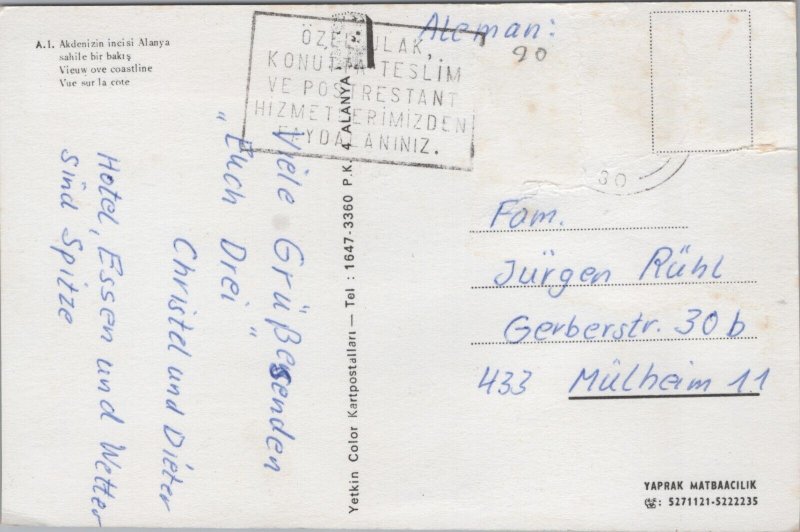 A.I. Akdenizin incisi Alanya
sahile bir bakış
Vieuw ove coastline
Vue sur la cote
KONUTTA TESLİM
VE POSTRESTANT
HİZMETLERİMİZDEN
FAYDALANINIZ.
Aleman:
90
30
Viele Grüße senden
"Euch Drei"
Christel und Dieter
Hotel, Essen und Wetter
sind Spitze
Yetkin Color Kartpostalları — Tel : 1647-3360 P.K. 4 ALANYA
Fam.
Jürgen Rühl
Gerberstr. 30b
433 Mülheim 11
YAPRAK MATBAACILIK
☎: 5271121-5222235